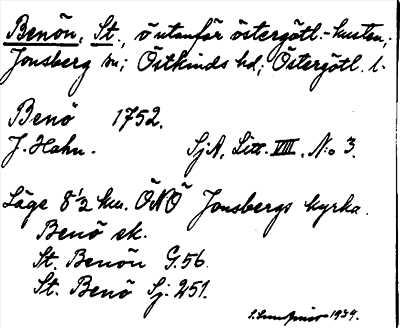 Benön, St., ö utanför östergötl.-kusten,
Jonsberg sn; Östkinds hd; Östergötl. l.
Benö 1752.
J. Hahn. SjA, Litt. VIII, N:o 3.
Läge 8 1/2 km. ÖNÖ Jonsbergs kyrka.
Benö ek.
St. Benön G. 56.
St. Benö Sj. 251.
1934.